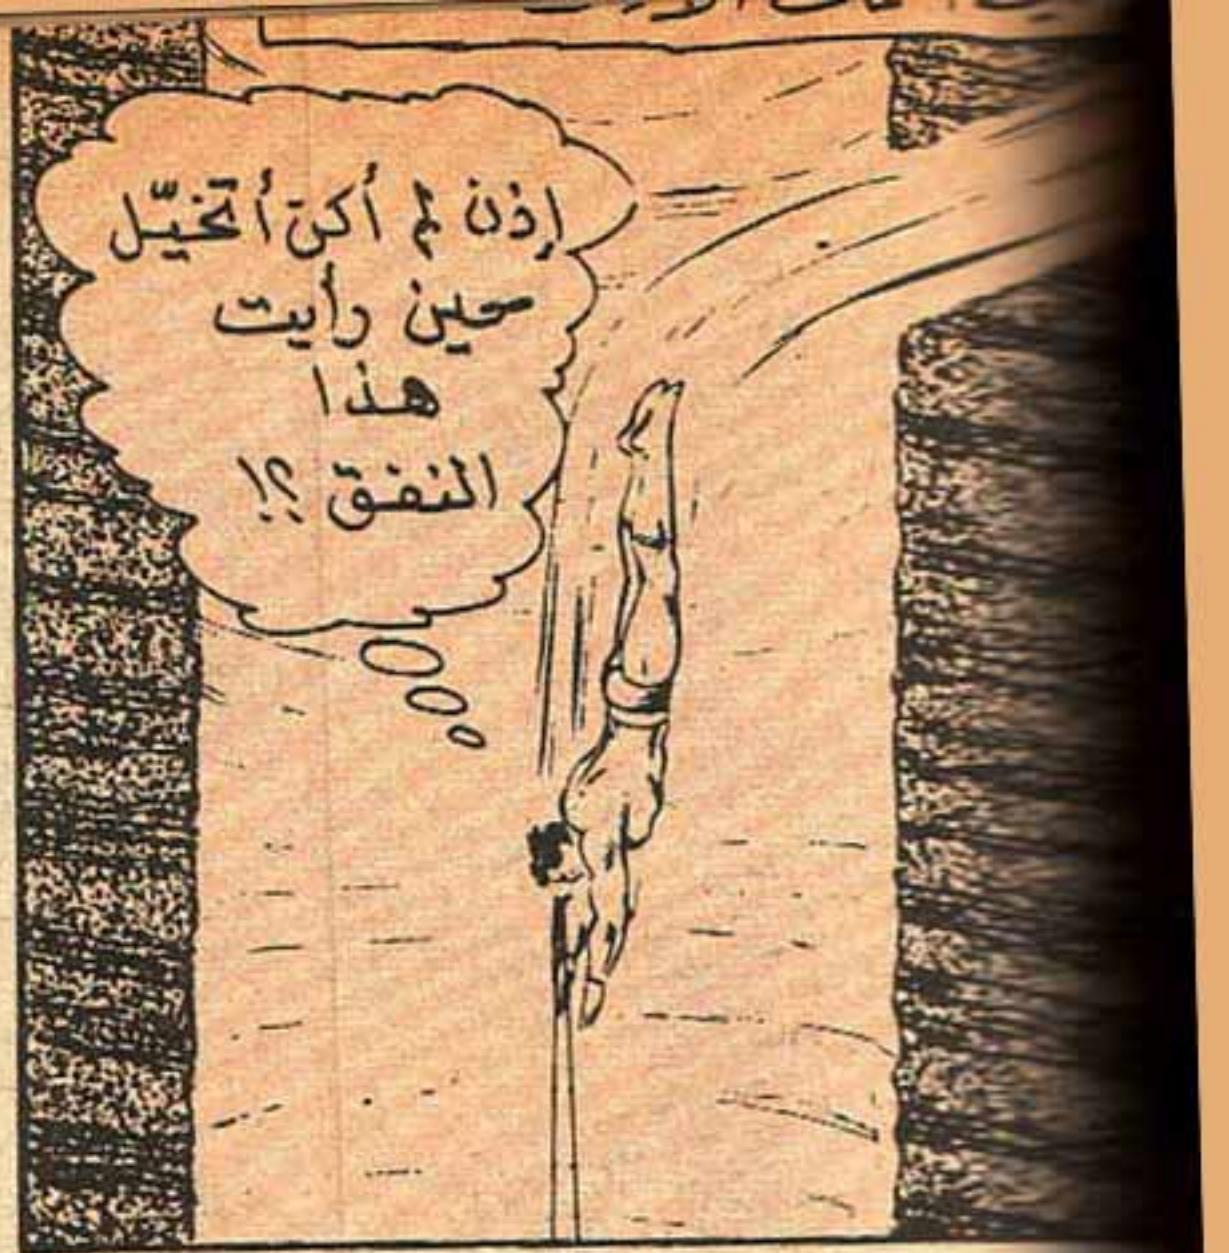 إذن لم أكن أتخيّل
حين رأيت
هذا
النفق ؟!